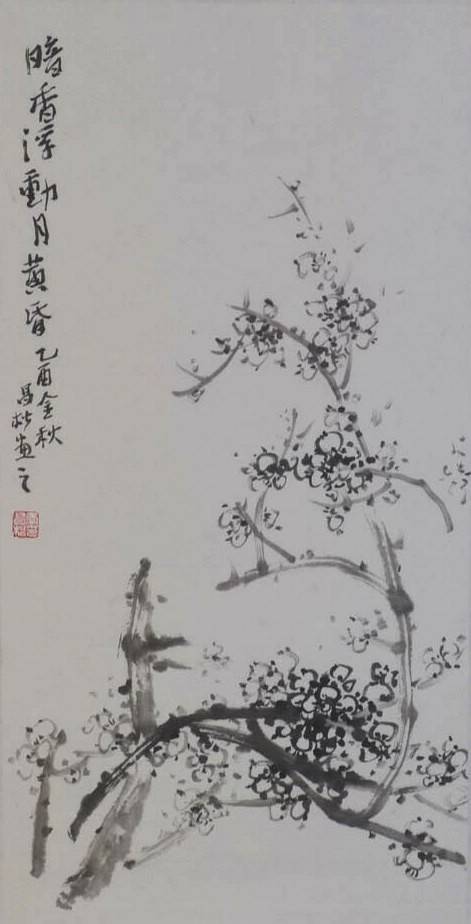 暗香浮動月黄昏
乙酉金秋
昌松画之